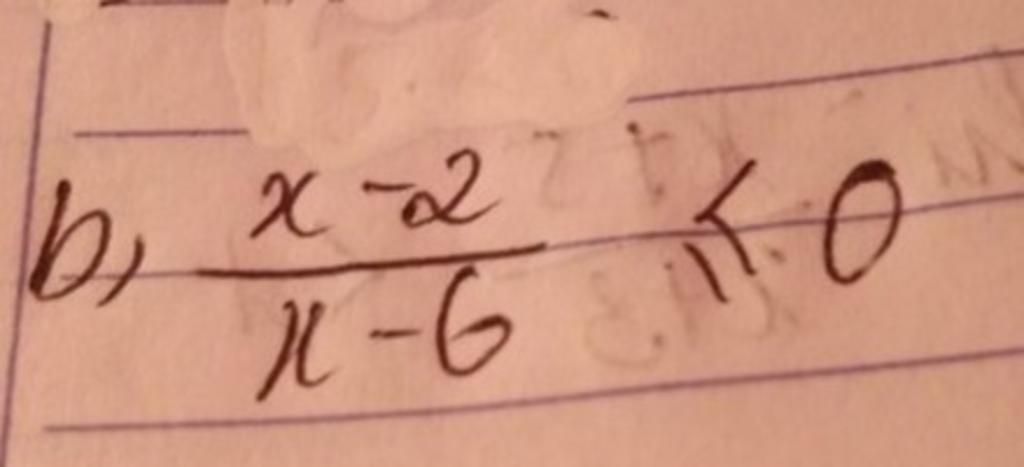 b, \frac{x-2}{x-6} ⩽ 0